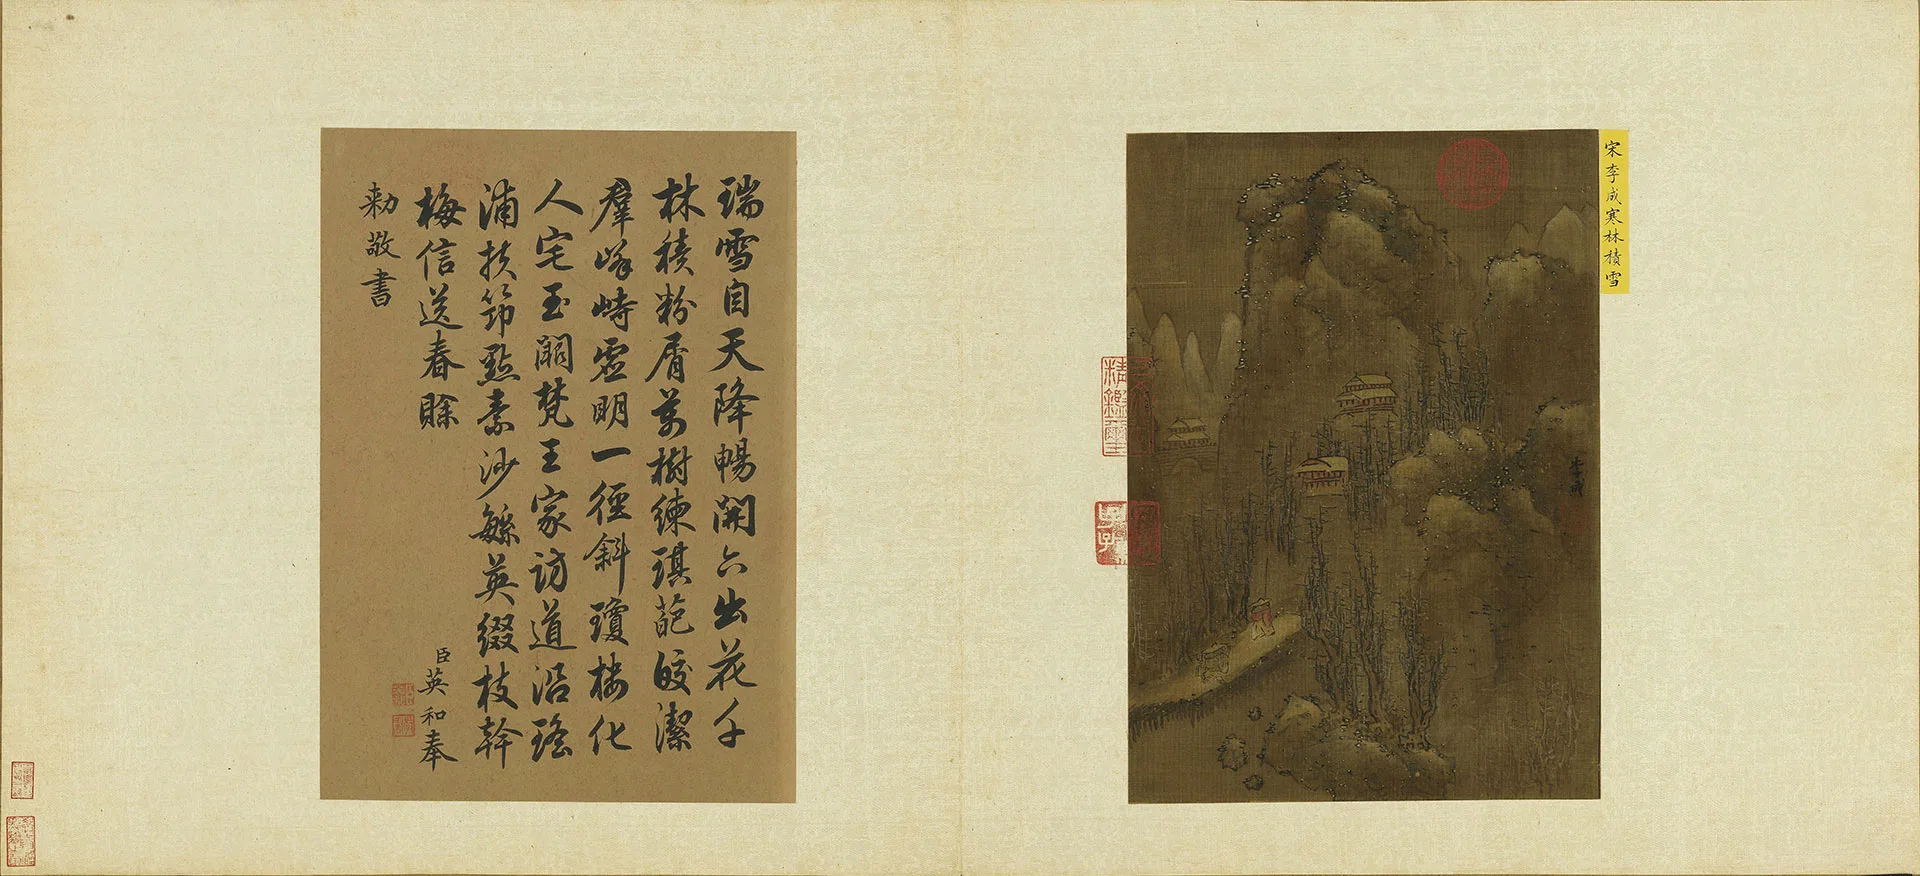 宋李成寒林積雪
李成
瑞雪自天降暢開六出花千
林積粉屑萬樹練琪葩皎潔
羣峰峙虛明一徑斜瓊樓化
人宅玉闕梵王家訪道沿瑤
浦扶筇點素沙緐英綴枝幹
梅信送春賖
臣英和奉
勅敬書